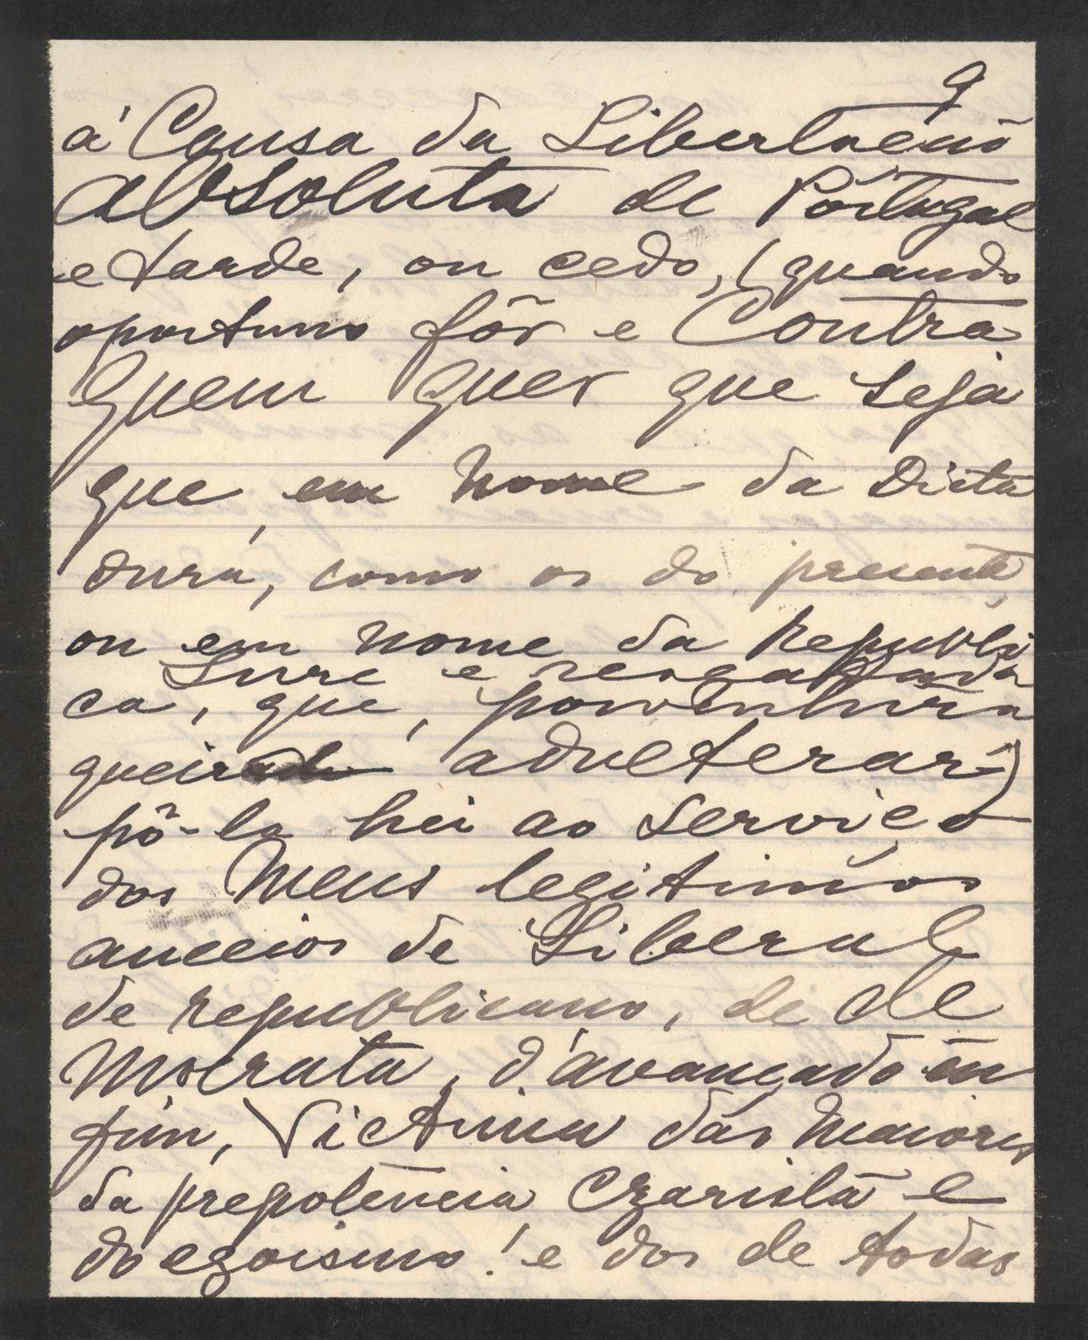 9
á Causa da Libertação
Absoluta de Portugal
e tarde, ou cedo, (quando
oportuno fôr e Contra
quem quer que seja
que, em nome da Dicta
dura, como os do presente,
ou em nome da Republi
Livre e resgatada
ca, que, porventura
queiram adulterar-)
pô-la hei ao serviço
dos meus legitimos
anceios de Liberal
de republicano, de de
mocrata, d'avançado en
fim, Victima das maiores
da prepotencia Czarista e
do egoismo! e dos de todas